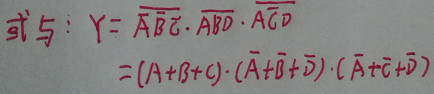 或与: Y = \overline{\overline{A}\,\overline{B}\,\overline{C}} · \overline{ABD} · \overline{A\overline{C}D}
= (A+B+C)·(\overline{A}+\overline{B}+\overline{D})·(\overline{A}+\overline{C}+\overline{D})